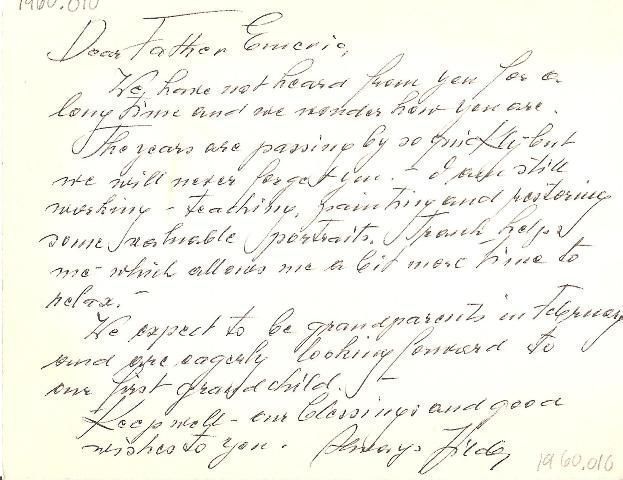 1960.010
Dear Father Emeric,
We have not heard from you for a
long time and we wonder how you are.
The years are passing by so quickly but
we will never forget you. - I am still
working - teaching, painting and restoring
some valuable portraits. Frank helps
me - which allows me a bit more time to
relax. -
We expect to be grandparents in February
and are eagerly looking forward to
our first grandchild. -
Keep well - our blessings and good
wishes to you. Always
1960.010